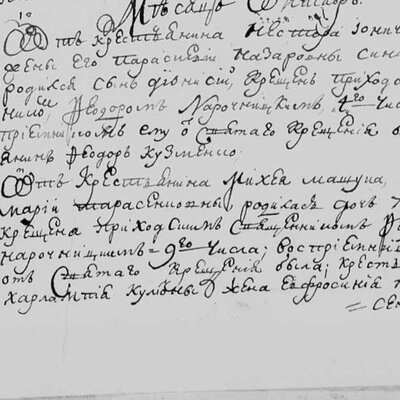 Мѣсяцъ Октябрь
12
Отъ крестьянина Нестора
жены его Параскеви Назаровны сина
родился сынъ Діонисій, крещенъ приходс
Феодоромъ Нарочницкимъ, 4го чис
пріемникомъ ему о Святаго крещенія б
янинъ Феодоръ Кузменко
Отъ крестьянина Михея Мацупа,
Маріи Тарасенковны родилася дочь
крещена приходскимъ священникомъ Ф
нарочницкимъ 9го числа; воспріемни
отъ Святаго крещенія была; кресть
Харлампія жена Евфросинія